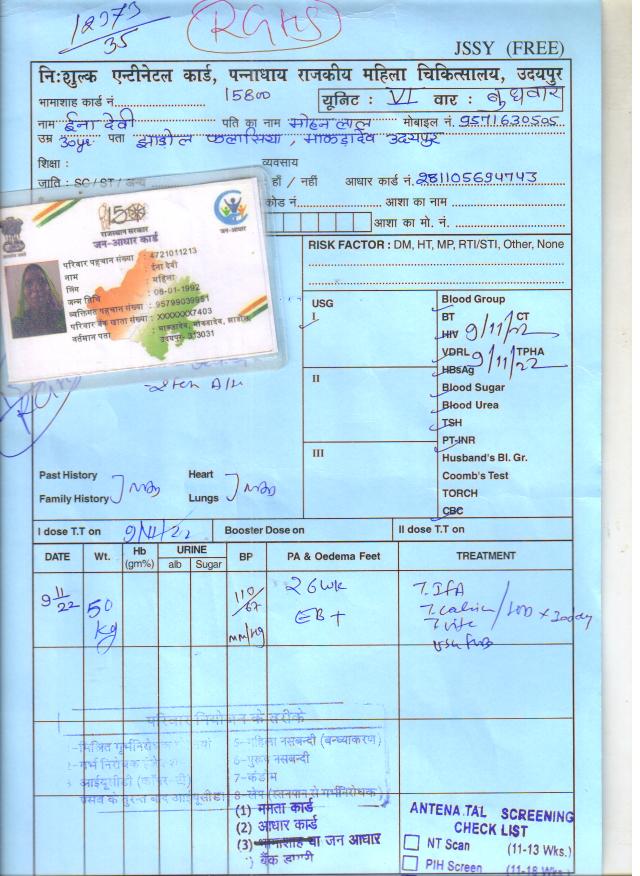 12973
35
RGHS
JSSY (FREE)
निःशुल्क एन्टीनेटल कार्ड, पन्नाधाय राजकीय महिला चिकित्सालय, उदयपुर
भामाशाह कार्ड नं. 15800 यूनिट : VI वार : बुधवार
नाम ईना देवी पति का नाम मोहन लाल मोबाइल नं. 9571630505
उम्र 30yr पता झाडोल फलासिया, माकडादेव उदयपुर
शिक्षा : व्यवसाय
जाति : SC / ST / अन्य हाँ / नहीं आधार कार्ड नं. 981105694743
कोड नं. आशा का नाम
आशा का मो. नं.
राजस्थान सरकार
जन-आधार कार्ड
जन-आधार
परिवार पहचान संख्या : 4721011213
नाम : ईना देवी
लिंग : महिला
जन्म तिथि : 08-01-1992
व्यक्तिगत पहचान संख्या : 95799039951
परिवार बैंक खाता संख्या : XXXXXXX7403
वर्तमान पता : माकडादेव, मोकडादेव, झाडोल
उदयपुर- 313031
RISK FACTOR : DM, HT, MP, RTI/STI, Other, None
USG
I
II
III
Blood Group
BT CT
HIV 9/11/22
VDRL TPHA 9/11/22
HBsAg
Blood Sugar
Blood Urea
TSH
PT-INR
Husband's Bl. Gr.
Coomb's Test
TORCH
CBC
Past History Heart
Family History Lungs
I dose T.T on 9/11/22 Booster Dose on II dose T.T on
DATE Wt. Hb (gm%) URINE alb Sugar BP PA & Oedema Feet TREATMENT
9/11/22 50 kg 110/67 mm/Hg 26wk T. IFA
T. Calcium
परिवार नियोजन के तरीके
5-महिला नसबन्दी (बन्ध्याकरण)
6-पुरुष नसबन्दी
7-कंडोम
(1) ममता कार्ड
(2) आधार कार्ड
(3) भामाशाह या जन आधार
ANTENA.TAL SCREENING
CHECK LIST
NT Scan (11-13 Wks.)
PIH Screen